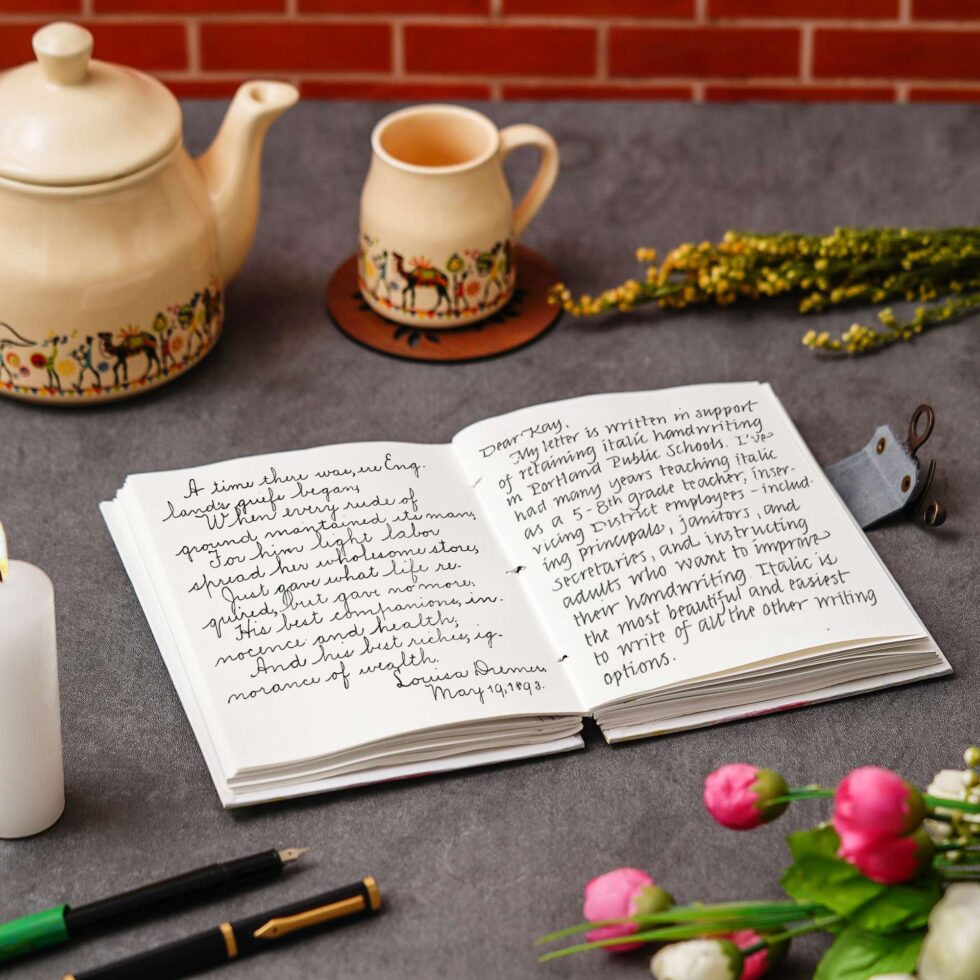 A time there was, ere Eng.
lands griefs began,
When every rude of
ground maintained its man,
For him light labor
spread her wholesome store,
Just gave what life re-
quired, but gave no more.
His best companions, in.
nocence and health;
And his best riches, ig-
norance of wealth.
Louisa
May 19, 1893.
Dear Kay,
My letter is written in support
of retaining italic handwriting
in Portland Public Schools. I've
had many years teaching italic
as a 5-8th grade teacher, inser-
vicing District employees - includ-
ing principals, janitors, and
secretaries, and instructing
adults who want to improve
their handwriting. Italic is
the most beautiful and easiest
to write of all the other writing
options.